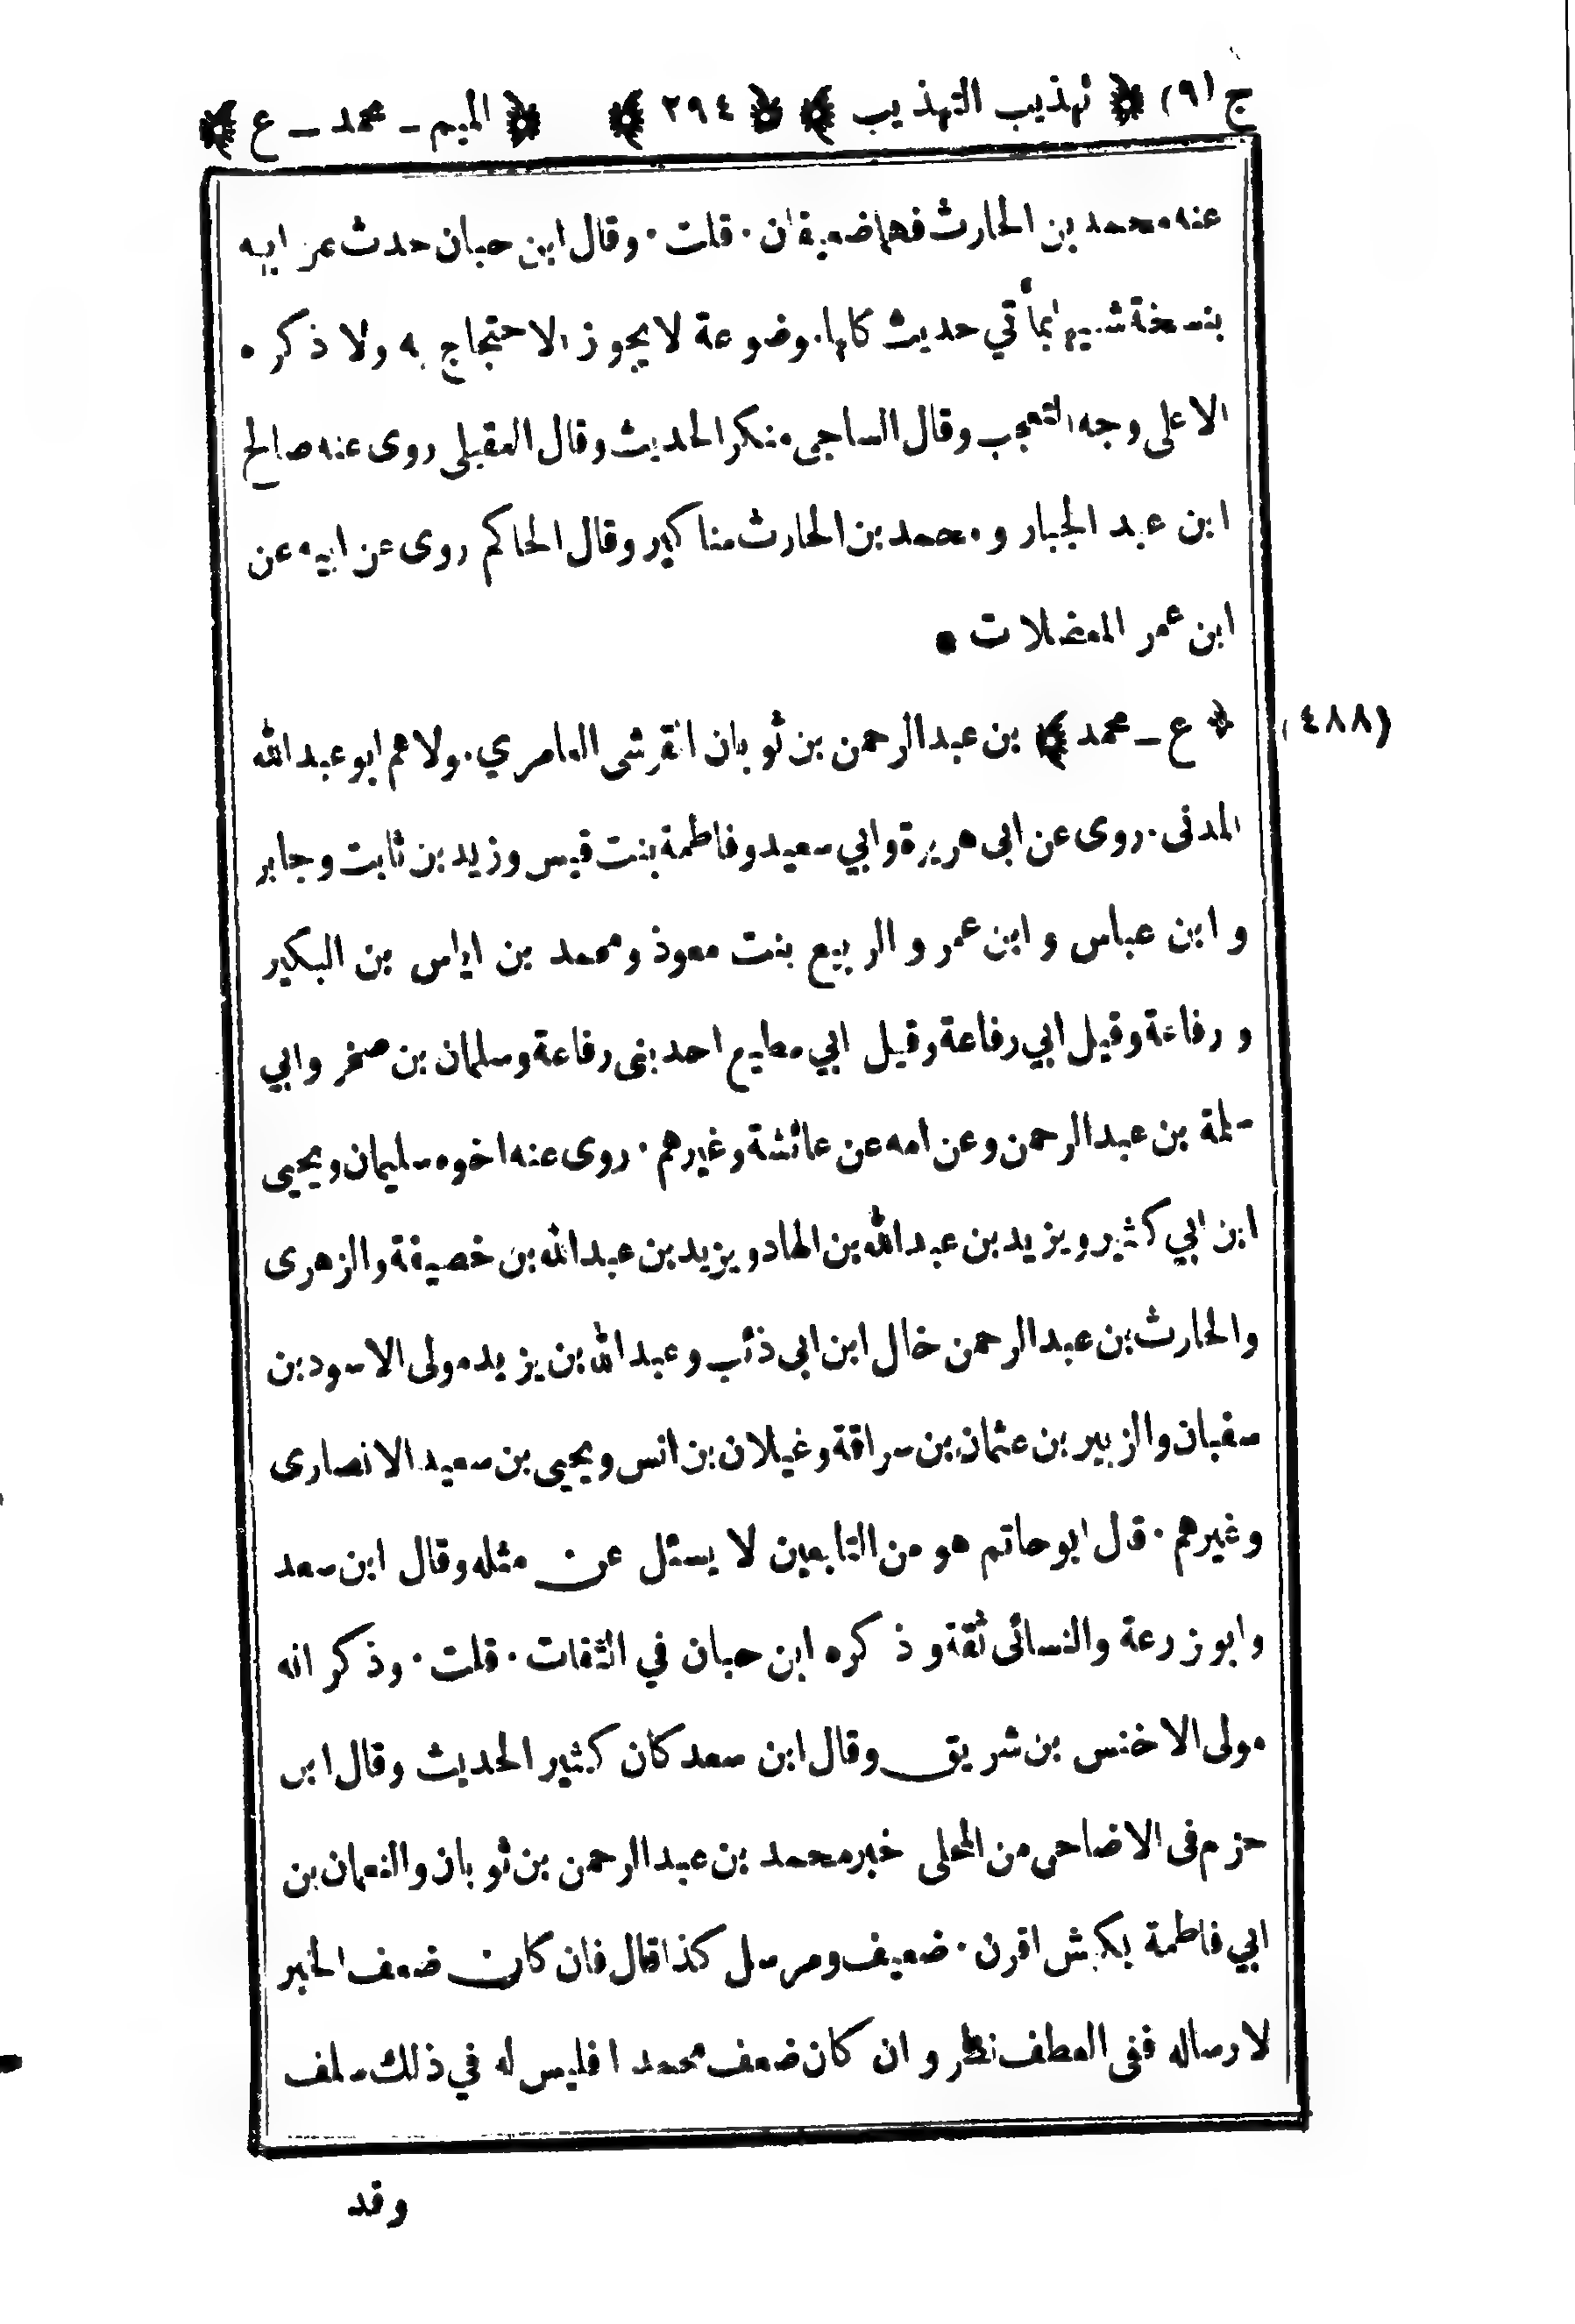 ج (٩) ﴿ تهذيب التهذيب ﴾ ﴿ ٢٩٤ ﴾ ﴿ الميم - محمد - ع ﴾
عنه محمد بن الحارث فهما ضعيفان · قلت · وقال ابن حبان حدث عن ابيه
بنسخة شبيها بمأتي حديث كلها موضوعة لا يجوز الاحتجاج به ولا ذكره
الا على وجه التعجب وقال الساجى منكر الحديث وقال العقيلى روى عنه صالح
ابن عبد الجبار و محمد بن الحارث مناكير وقال الحاكم روى عن ابيه عن
ابن عمر المعضلات •
(٤٨٨) ﴿ ع - محمد ﴾ بن عبد الرحمن بن ثوبان القرشى العامري · ولاهم ابو عبد الله
المدنى · روى عن ابى هريرة وابي سعيد وفاطمة بنت قيس وزيد بن ثابت وجابر
و ابن عباس و ابن عمر و الربيع بنت معوذ ومحمد بن اياس بن البكير
و رفاعة وقيل ابي رفاعة وقيل ابي مطيع احد بنى رفاعة وسلمان بن صخر وابي
سلمة بن عبد الرحمن وعن امه عن عائشة وغيرهم · روى عنه اخوه سليمان ويحيى
ابن ابي كثير ويزيد بن عبد الله بن الهاد ويزيد بن عبد الله بن خصيفة والزهرى
والحارث بن عبد الرحمن خال ابن ابى ذئب وعبد الله بن يزيد مولى الاسود بن
سفيان والزبير بن عثمان بن سراقة وغيلان بن انس ويحيى بن سعيد الانصارى
وغيرهم · قال ابو حاتم هو من التابعين لا يسئل عن مثله وقال ابن سعد
وابو زرعة والنسائى ثقة و ذكره ابن حبان في الثقات · قلت · وذكر انه
مولى الاخنس بن شريق وقال ابن سعد كان كثير الحديث وقال ابن
حزم فى الاضاحى من المحلى خبر محمد بن عبد الرحمن بن ثوبان والنعمان بن
ابي فاطمة بكبش اقرن · ضعيف ومرسل كذا قال فان كان ضعف الخبر
لارساله ففى العطف نظر و ان كان ضعف محمد ا فليس له في ذلك سلف
وقد